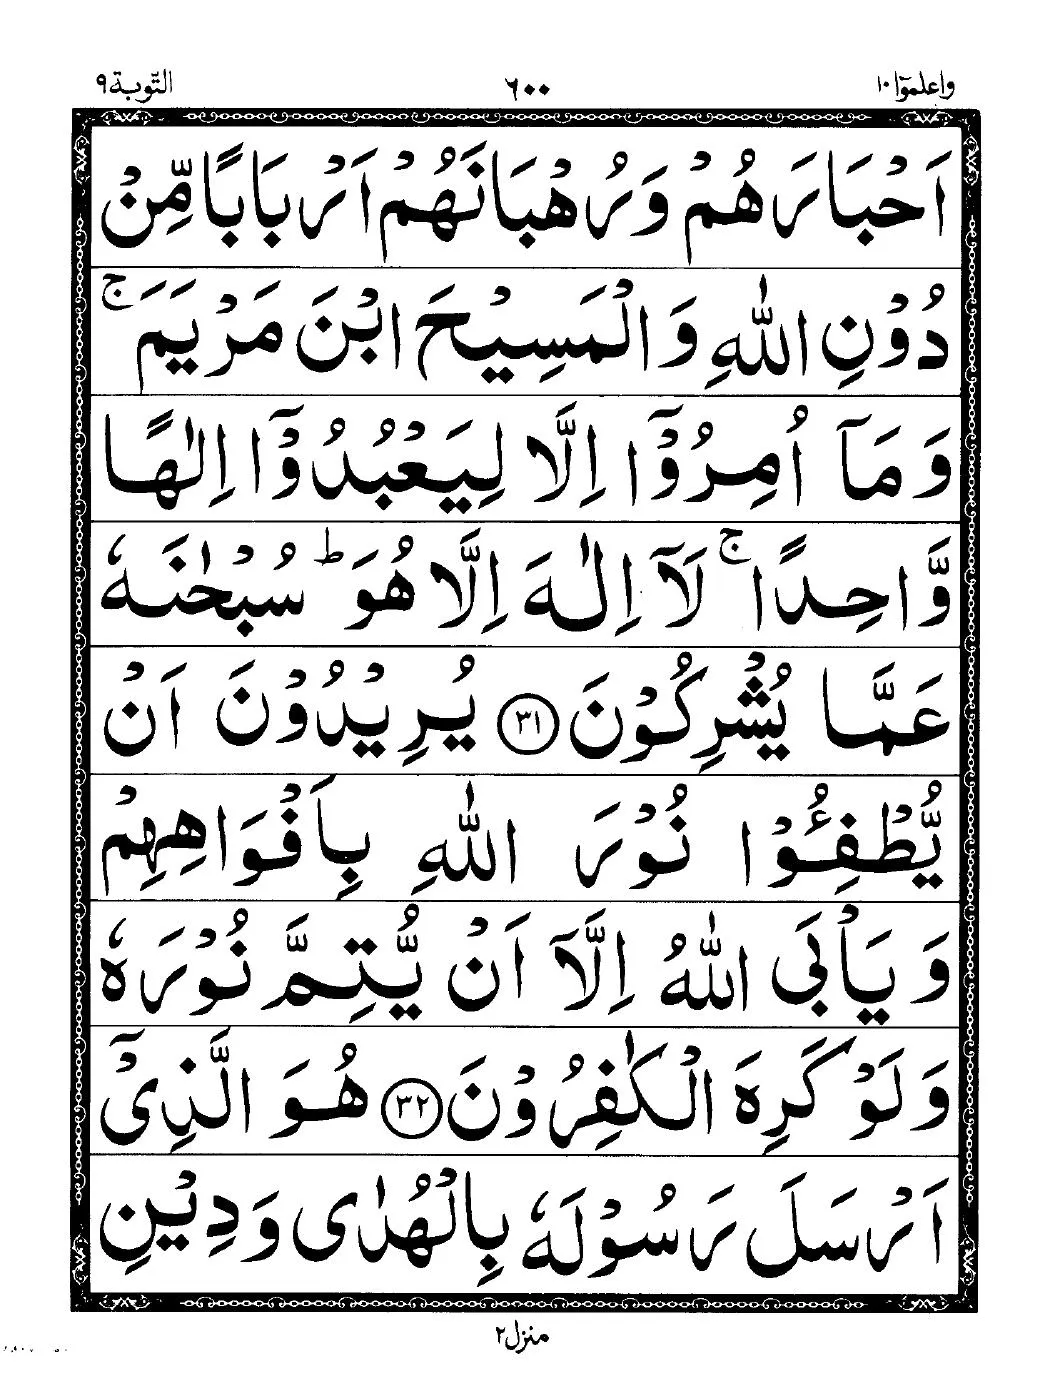 واعلموٓا ١٠ ٦٠٠ التّوبة ٩
اَحْبَارَهُمْ وَرُهْبَانَهُمْ اَرْبَابًا مِّنْ
دُوْنِ اللّٰهِ وَالْمَسِيْحَ ابْنَ مَرْيَمَ ۚ
وَمَآ اُمِرُوْٓا اِلَّا لِيَعْبُدُوْٓا اِلٰهًا
وَّاحِدًا ۚ لَآ اِلٰهَ اِلَّا هُوَ ؕ سُبْحٰنَهٗ
عَمَّا يُشْرِكُوْنَ ﴿٣١﴾ يُرِيْدُوْنَ اَنْ
يُّطْفِـُٔوْا نُوْرَ اللّٰهِ بِاَفْوَاهِهِمْ
وَيَاْبَى اللّٰهُ اِلَّآ اَنْ يُّتِمَّ نُوْرَهٗ
وَلَوْ كَرِهَ الْكٰفِرُوْنَ ﴿٣٢﴾ هُوَ الَّذِيْٓ
اَرْسَلَ رَسُوْلَهٗ بِالْهُدٰى وَدِيْنِ
منزل ٢